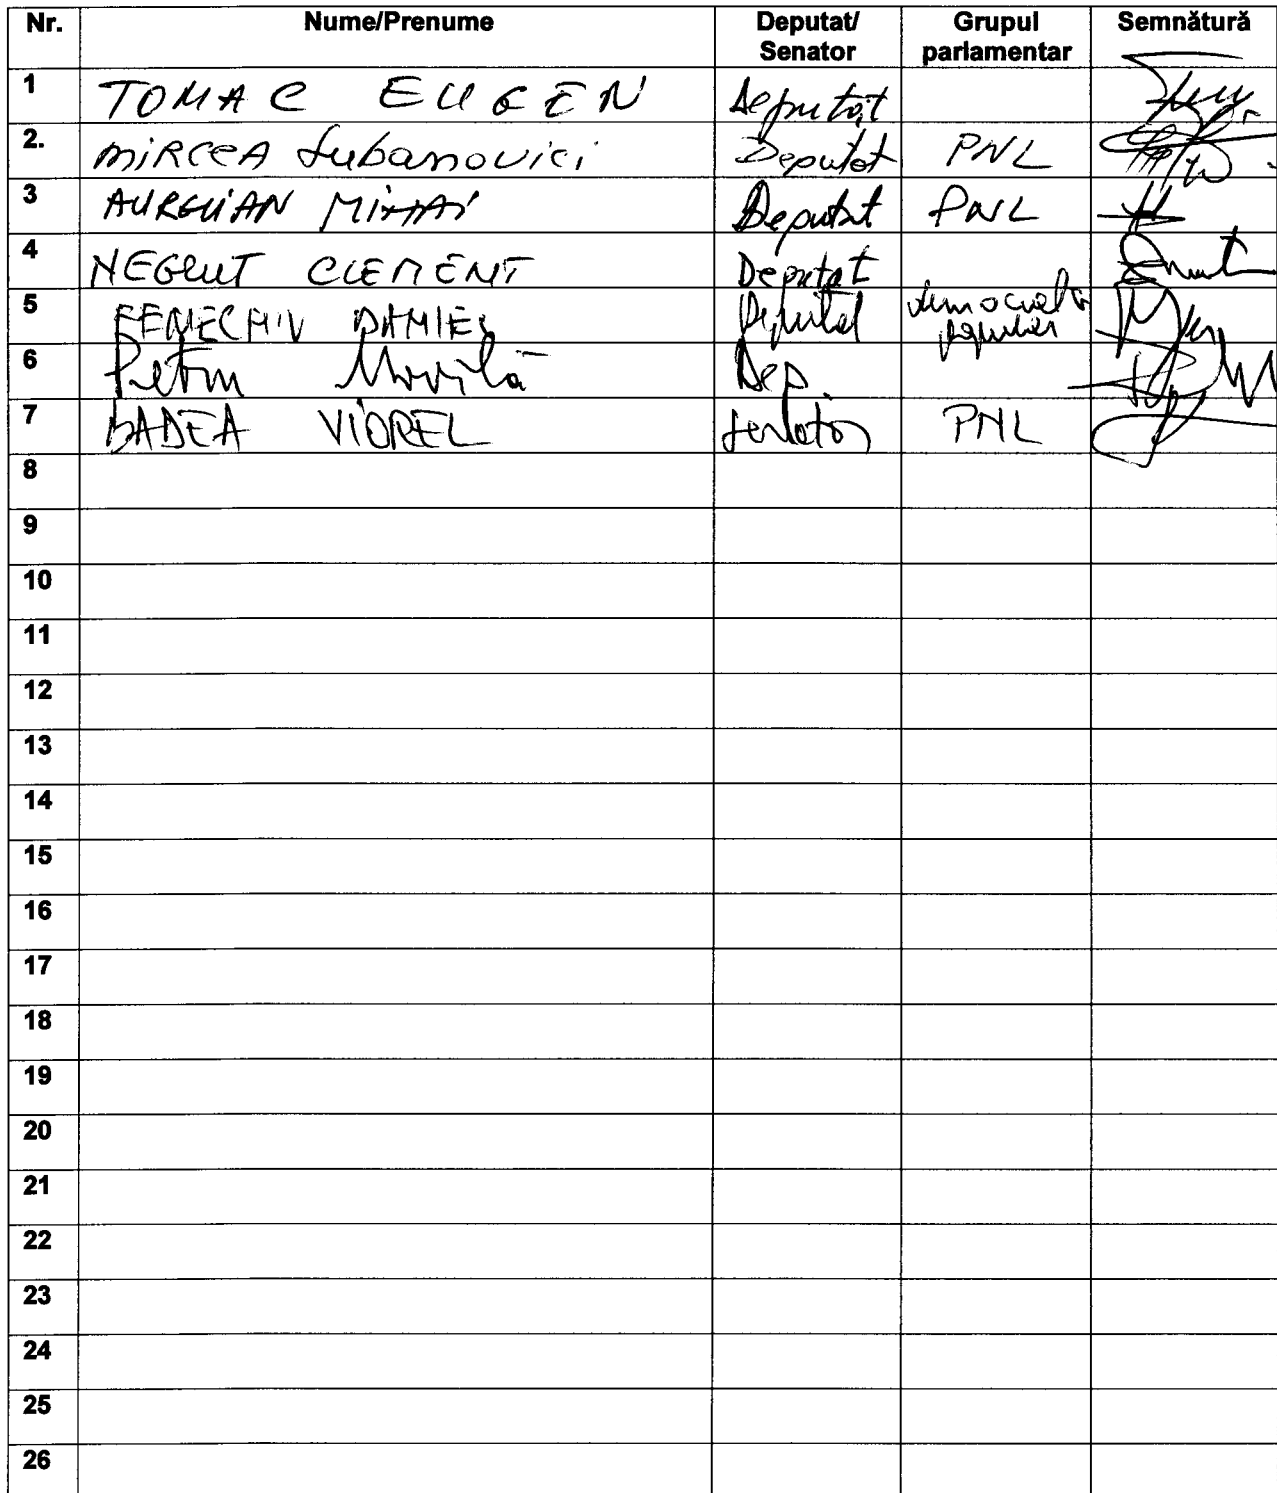 Nr. Nume/Prenume Deputat/ Senator Grupul parlamentar Semnătură
1 TOMAC EUGEN Deputat
2. MIRCEA Lubanovici Deputat PNL
3 AURELIAN MIHAI Deputat PNL
4 NEGRUT CLEMENT Deputat
5 DANIEL Deputat democrat popular
6 Petru Movilă Dep
7 BADEA VIOREL senator PNL
8
9
10
11
12
13
14
15
16
17
18
19
20
21
22
23
24
25
26